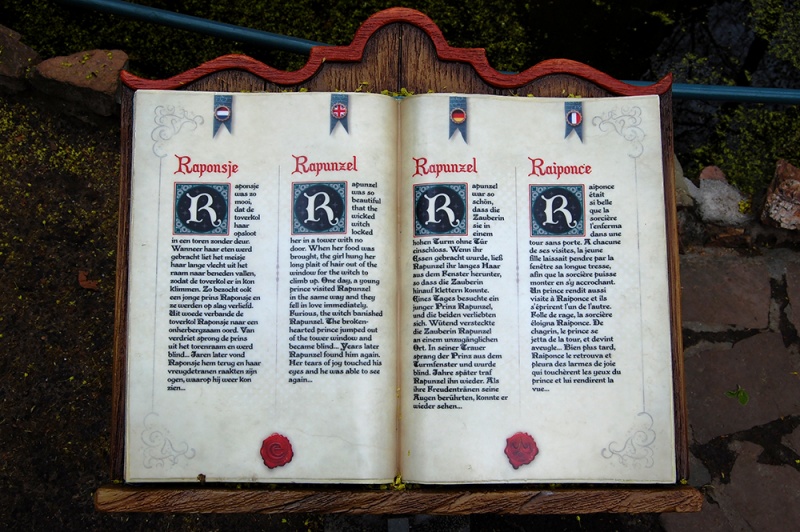 Raponsje
Raponsje
was zo
mooi,
dat de
toverkol
haar
opsloot
in een toren zonder deur.
Wanneer haar eten werd
gebracht liet het meisje
haar lange vlecht uit het
raam naar beneden vallen,
zodat de toverkol er in kon
klimmen. Zo bezocht ook
een jonge prins Raponsje en
ze werden op slag verliefd.
Uit woede verbande de
toverkol Raponsje naar een
onherbergzaam oord. Van
verdriet sprong de prins
uit het torenraam en werd
blind... Jaren later vond
Raponsje hem terug en haar
vreugdetranen raakten zijn
ogen, waarop hij weer kon
zien...
Rapunzel
Rapunzel
was so
beautiful
that the
wicked
witch
locked
her in a tower with no
door. When her food was
brought, the girl hung her
long plait of hair out of the
window for the witch to
climb up. One day, a young
prince visited Rapunzel
in the same way and they
fell in love immediately.
Furious, the witch banished
Rapunzel. The broken-
hearted prince jumped out
of the tower window and
became blind... Years later
Rapunzel found him again.
Her tears of joy touched his
eyes and he was able to see
again...
Rapunzel
Rapunzel
war so
schön,
dass die
Zauberin
sie in
einem
hohen Turm ohne Tür
einschloss. Wenn ihr
Essen gebracht wurde, ließ
Rapunzel ihr langes Haar
aus dem Fenster herunter,
so dass die Zauberin
hinauf klettern konnte.
Eines Tages besuchte ein
junger Prinz Rapunzel,
und die beiden verliebten
sich. Wütend versteckte
die Zauberin Rapunzel
an einem unzugänglichen
Ort. In seiner Trauer
sprang der Prinz aus dem
Turmfenster und wurde
blind. Jahre später traf
Rapunzel ihn wieder. Als
ihre Freudentränen seine
Augen berührten, konnte er
wieder sehen...
Raiponce
Raiponce
était
si belle
que la
sorcière
l'enferma
dans une
tour sans porte. A chacune
de ses visites, la jeune
fille laissait pendre par la
fenêtre sa longue tresse,
afin que la sorcière puisse
monter en s'y accrochant.
Un prince rendit aussi
visite à Raiponce et ils
s'éprirent l'un de l'autre.
Folle de rage, la sorcière
éloigna Raiponce. De
chagrin, le prince se
jetta de la tour, et devint
aveugle... Bien plus tard,
Raiponce le retrouva et
pleura des larmes de joie
qui touchèrent les yeux du
prince et lui rendirent la
vue...